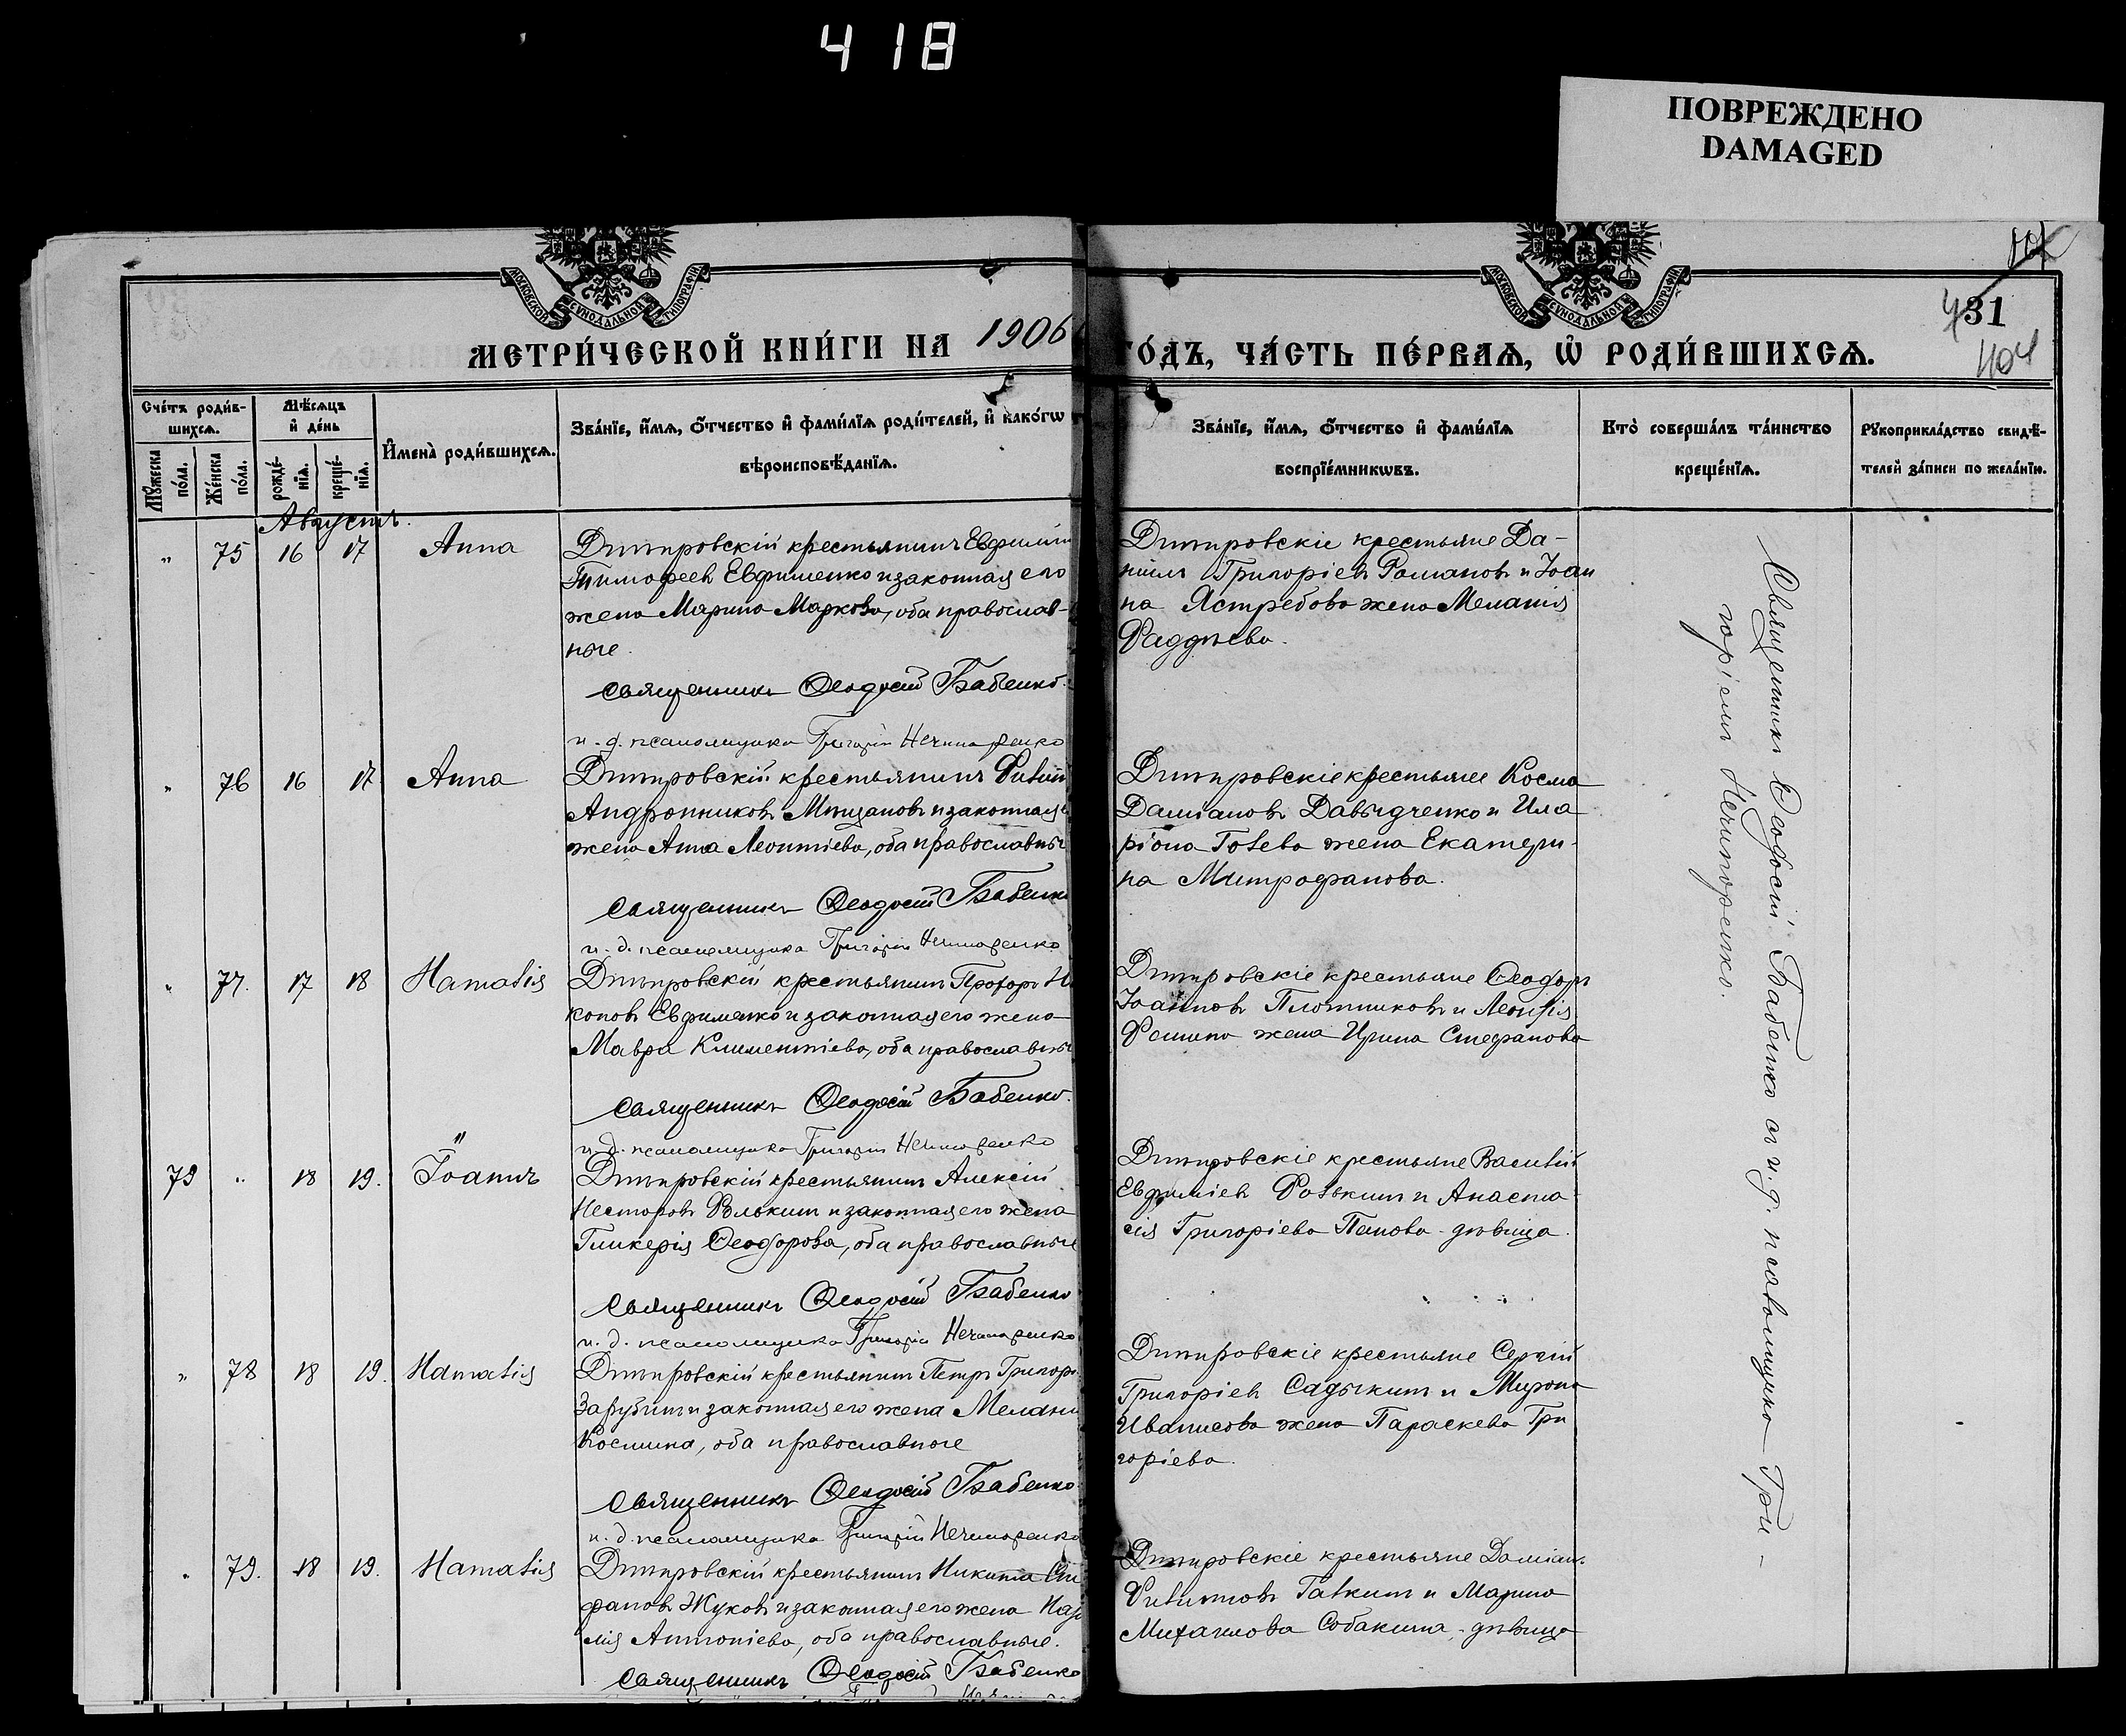 418
ПОВРЕЖДЕНО
DAMAGED
МОСКОВСКОЙ СѴНОДАЛЬНОЙ ТИПОГРАФІИ
МОСКОВСКОЙ СѴНОДАЛЬНОЙ ТИПОГРАФІИ
31
404
МЕТРИ́ЧЕСКОЙ КНИ́ГИ НА 1906
ГО́ДЪ, ЧА́СТЬ ПЕ́РВАѦ, Ѡ҆ РОДИ́ВШИХСѦ.
Сче́тъ роди́в-
шихсѧ.
Мꙋ́жеска
по́ла.
Же́нска
по́ла.
Мѣ́сѧцъ
и҆ де́нь
рожде́-
нїѧ.
креще́-
нїѧ.
И҆мена̀ роди́вшихсѧ.
Зва́нїе, и҆́мѧ, ѻ҆́тчество и҆ фами́лїѧ роди́телей, и҆ како́гѡ
вѣроисповѣ́данїѧ.
Зва́нїе, и҆́мѧ, ѻ҆́тчество и҆ фами́лїѧ
воспрїе́мникѡвъ.
Кто̀ соверша́лъ та́инство
креще́нїѧ.
Рꙋкоприкла́дство свидѣ́-
телей за́писи по жела́нїю.
Августъ.
" 75 16 17 Анна
Дмитровскій крестьянинъ Евфимій
Тимофеев Евфименко и законная его
жена Марина Маркова, оба православ-
ные.
Священникъ Ѳеодосій Бабенко.
и. д. псаломщика Григорій Нечипоренко
Дмитровскіе крестьяне Да-
ніилъ Григоріев Романовъ и Іоан
на Ястребова жена Меланія
Фаддѣева.
" 76 16 17 Анна
Дмитровскій крестьянинъ Филипп
Андронниковъ Мищановъ и законная
жена Анна Леонтіева, оба православны
Священникъ Ѳеодосій Бабенко
и. д. псаломщика Григорій Нечипоренко
Дмитровскіе крестьяне Косма
Даміановъ Давыдченко и Ила
ріона Голева жена Екатери-
на Митрофанова.
" 77. 17 18 Наталія
Дмитровскій крестьянинъ Прохоръ Ни
коновъ Евфименко и законная его жена
Мавра Климентіева, оба православны
Священникъ Ѳеодосій Бабенко.
и. д. псаломщика Григорій Нечипоренко
Дмитровскіе крестьяне Ѳеодоръ
Іоанновъ Плотниковъ и
жена Ирина Стефанова
79 " 18 19. Іоаннъ
Дмитровскій крестьянинъ Алексій
Несторовъ Фолькинъ и законная его жена
Гликерія Ѳеодорова, оба православные
Священникъ Ѳеодосій Бабенко
и. д. псаломщика Григорій Нечипоренко
Дмитровскіе крестьяне Василій
Евфиміев Фолькинъ и Анаста-
сія Григоріева Панова - дѣвица.
" 78 18 19. Наталія
Дмитровскій крестьянинъ Петръ Григорь
Зарубинъ и законная его жена Мелані
Космина, оба православные
Священникъ Ѳеодосій Бабенко
и. д. псаломщика Григорій Нечипоренко
Дмитровскіе крестьяне Сергій
Григоріев Садыкинъ и Мирона
Иванисова жена Параскева Гри
горіева.
" 79. 18 19. Наталія
Дмитровскій крестьянинъ Никита
фановъ Жуковъ и законная его жена
лія Антоніева, оба православные.
Священникъ Ѳеодосій Бабенко
Дмитровскіе крестьяне Даміан
Филипповъ Галкинъ и Марина
Михаилова Собакина - дѣвица
Священникъ Ѳеодосій Бабенко съ и. д. псаломщика Гри-
горіемъ Нечипоренко.